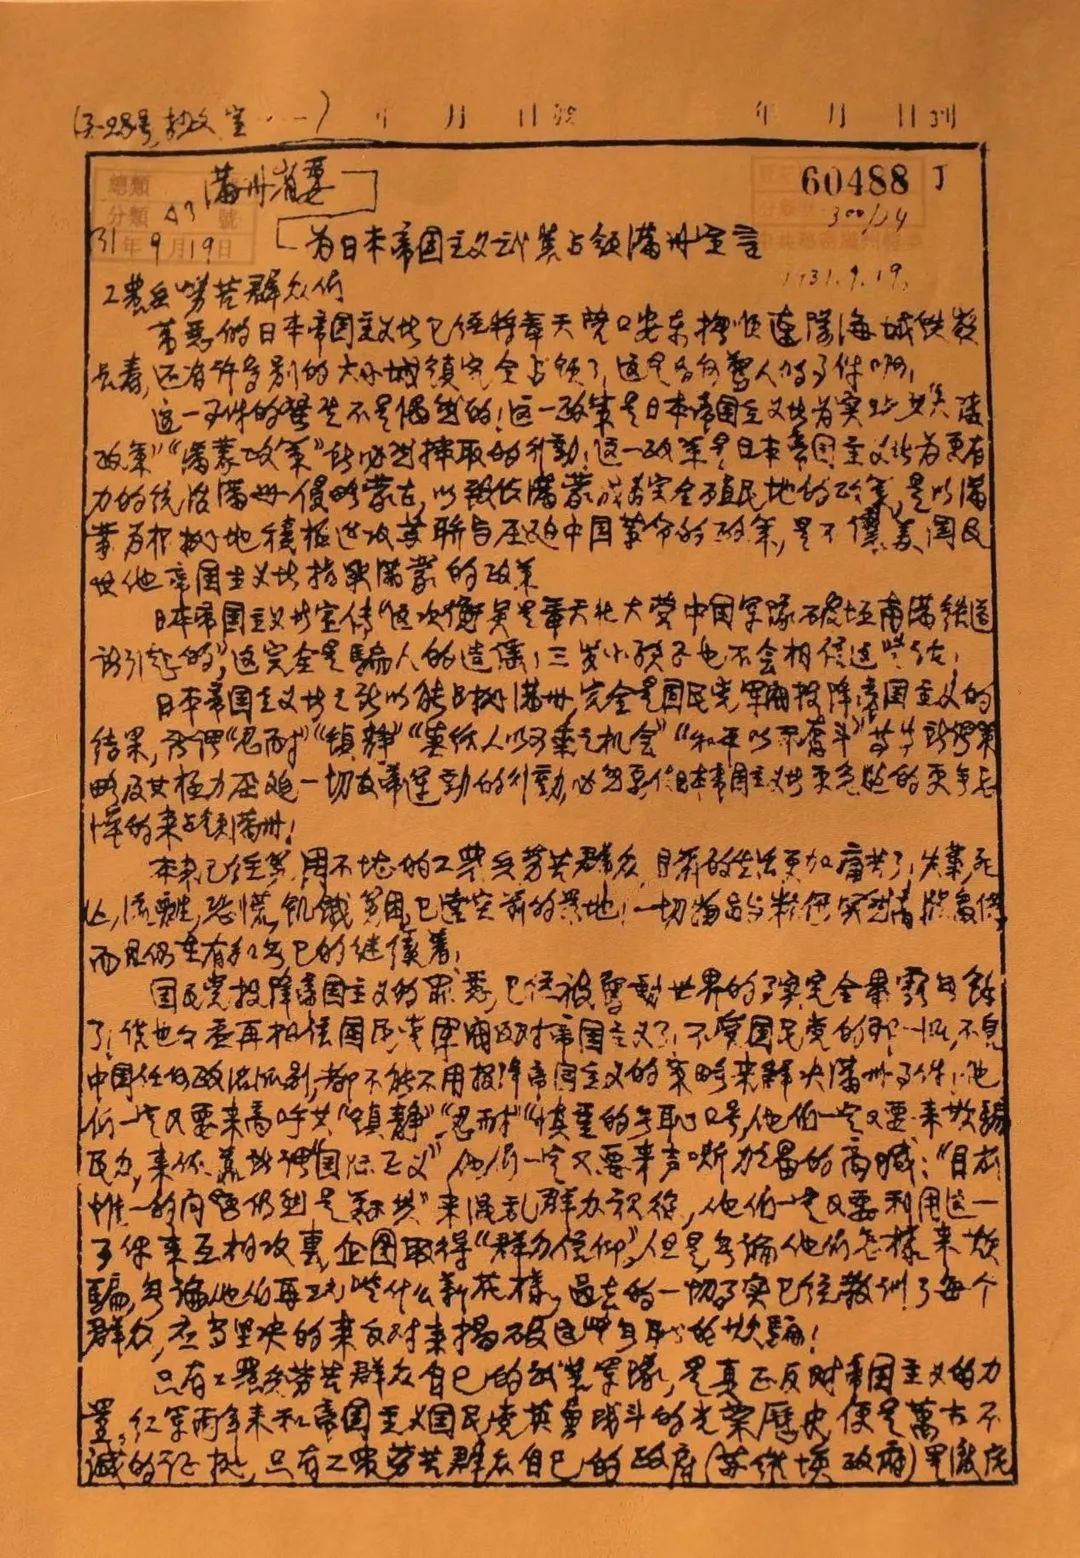 年 月 日 年 月 日到
總類
分類 號
年 月 日
满州省委
A3
31 9 19
60488 丁
300/24
为日本帝国主义武装占领满州宣言
1931.9.19.
工农兵劳苦群众们
万恶的日本帝国主义者已经将奉天营口安东撫顺 海城铁岭
長春,还有许多别的大小城镇完全占领了,这是多么惊人的事件啊!
这一事件的發生不是偶然的!这一政策是日本帝国主义者为实
政策”“满蒙政策”所必然採取的行動!这一政策是日本帝国主义者为更有
力的统治满州侵略蒙古,以致使满蒙成为完全殖民地的政策,是以满
蒙为根據地積極进攻蘇聯与压迫中国革命的政策,是不 美国及
其他帝国主义者指染满蒙的政策
日本帝国主义者宣传“这次 是奉天北大营中国军隊破坏南满铁道
所引起的”,这完全是騙人的造谣,三岁小孩子也不会相信这些话!
日本帝国主义者之所以能占據满州,完全是国民党军阀投降帝国主义的
结果,所谓“忍耐”“镇静”“莫给人以可乘之机会”“和平以 奋斗”等等 策
略及其極力压迫一切反帝運動的行動,必然要使日本帝国主义者更 的更無忌
惮的来占领满州!
本来已经 不堪的工农兵劳苦群众,目前的生活更加痛苦了,失業死
亡,流離,恐慌,飢餓贫困,已達空前的 地!一切物品与粮食突然
而且仍在有加無已的继續着!
国民党投降帝国主义的罪恶,已经被 世界的事实完全暴露無餘
了!谁也不 再相信国民党军阀反对帝国主义了!不管国民党的那一派,不管
中国任何政治派别,都不能不用投降帝国主义的策略来解决满州事件!他
们一定又要来高呼其“镇静”“忍耐”“慎重的無恥口号,他们一定又要来欺騙
民众,来依靠所谓“国际正义”他们一定又要来声嘶力竭的高喊:“目前
惟一的问题仍然是剿共”来混乱群众视線,他们一定又要利用这一
事件来互相攻襲,企图取得“群众信仰”,但是無論他们怎樣来欺
騙,無論他们再玩些什么新花樣,过去的一切事实已经教訓了每个
群众,应当坚决的来反对来揭破这些無恥的欺騙!
只有工农兵劳苦群众自己的武装军隊,是真正反对帝国主义的力
量,红军两年来和帝国主义国民党英勇战斗的光荣歷史,便是萬古不
滅的证據,只有工农劳苦群众自己的政府(苏维埃政府)是澈底